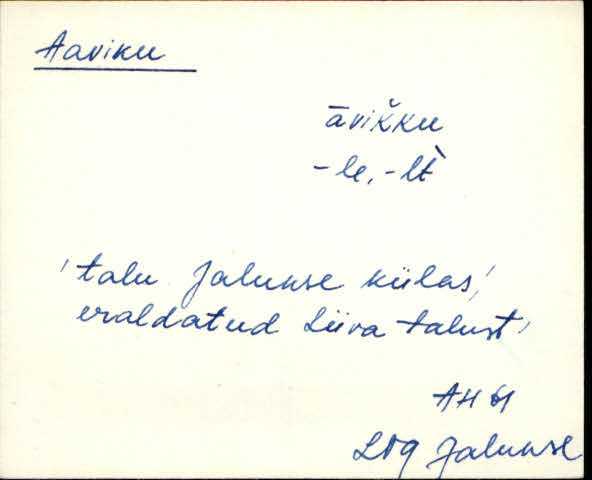 Aaviku
āvikku
-le, -lt̀
'talu Jalukse külas,
eraldatud Liiva talust'
AH 61
Jalukse